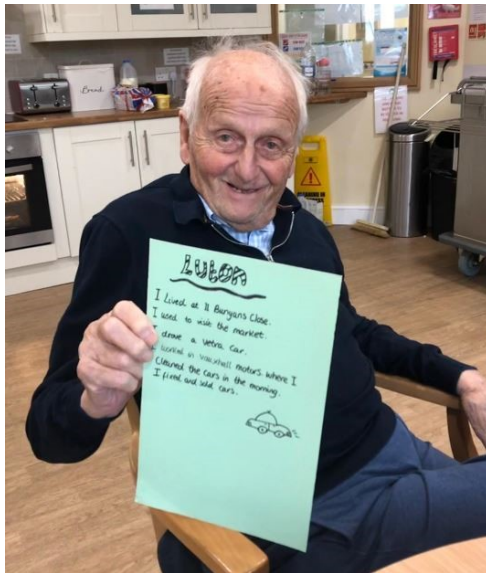 Bread
LUTON
I lived at 11 Bunyans Close.
I used to visit the market.
I drove a Vetra car.
I worked in Vauxhall motors. Where I
Cleaned the cars in the morning.
I fixed and sold cars.